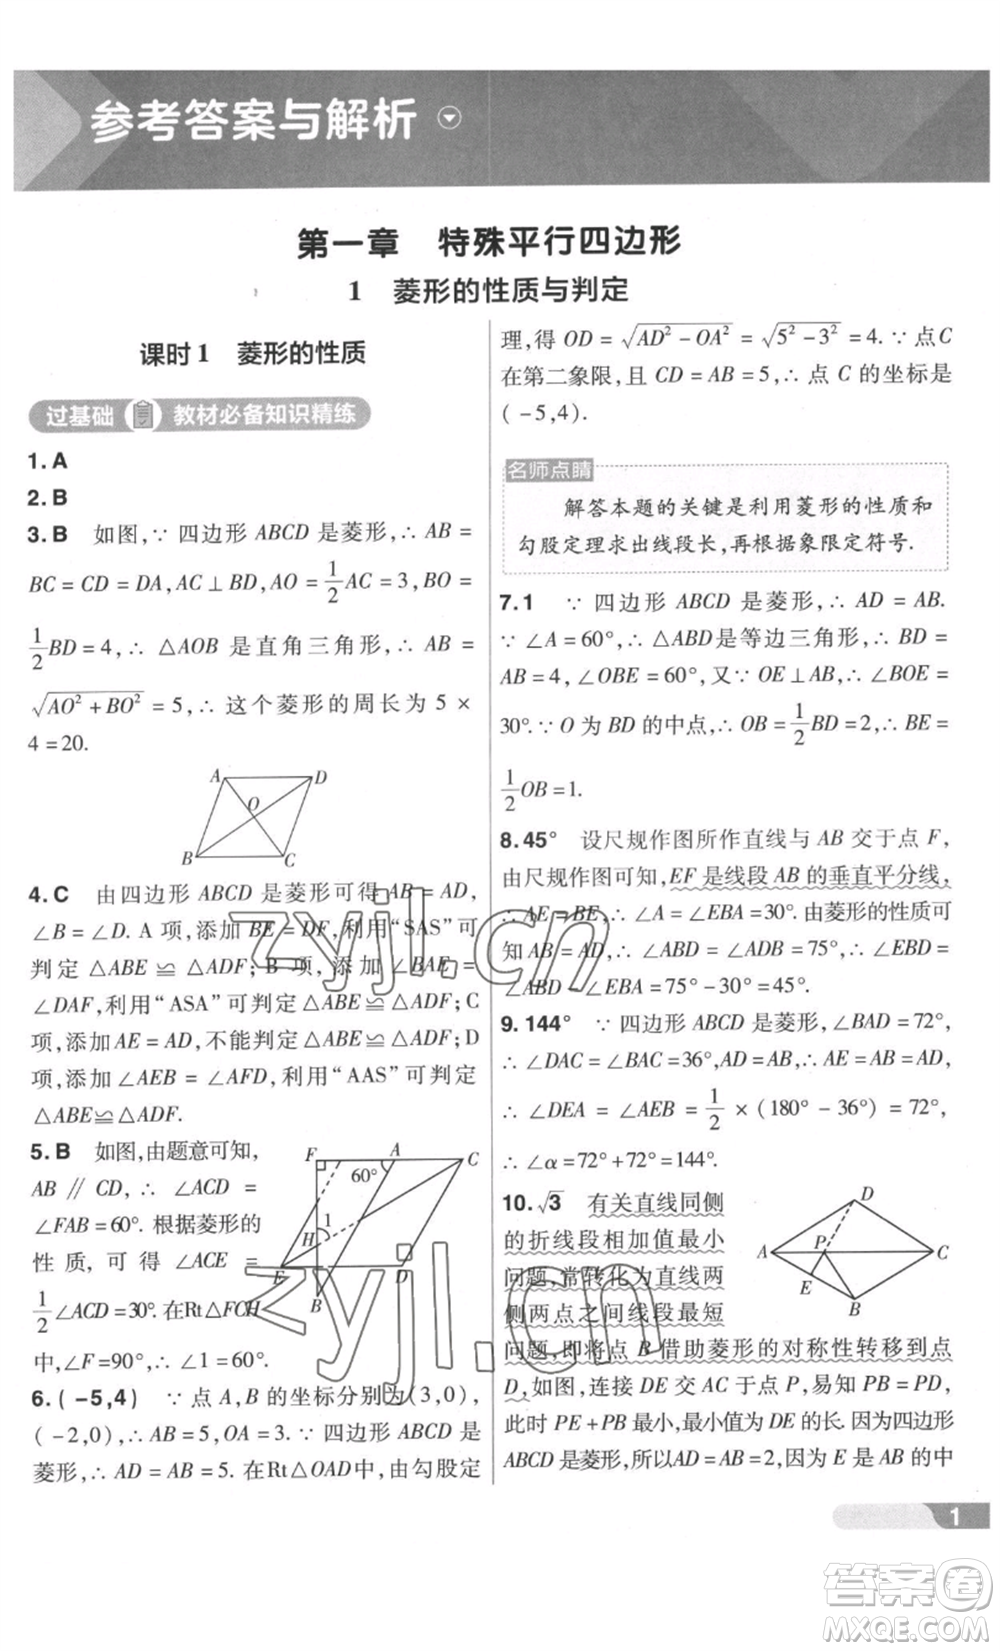 参考答案与解析
第一章 特殊平行四边形
1 菱形的性质与判定
课时1 菱形的性质
过基础 教材必备知识精练
1. A
2. B
3. B 如图,∵ 四边形 ABCD 是菱形,∴ AB =
BC = CD = DA, AC ⊥ BD, AO = 1/2 AC = 3, BO =
1/2 BD = 4,∴ △AOB 是直角三角形,∴ AB =
√(AO² + BO²) = 5,∴ 这个菱形的周长为 5 ×
4 = 20.
A D
O
B C
4. C 由四边形 ABCD 是菱形可得 AB = AD,
∠B = ∠D. A 项,添加 BE = DF,利用“SAS”可
判定 △ABE ≌ △ADF; B 项,添加 ∠BAE =
∠DAF,利用“ASA”可判定 △ABE ≌ △ADF; C
项,添加 AE = AD,不能判定 △ABE ≌ △ADF; D
项,添加 ∠AEB = ∠AFD,利用“AAS”可判定
△ABE ≌ △ADF.
5. B 如图,由题意可知,
AB ∥ CD,∴ ∠ACD =
∠FAB = 60°. 根据菱形的
性质,可得 ∠ACE =
1/2 ∠ACD = 30°. 在Rt△FCH
中,∠F = 90°,∴ ∠1 = 60°.
F A C
60°
1
H
E D
B
6. (-5,4) ∵ 点 A,B 的坐标分别为(3,0),
(-2,0),∴ AB = 5, OA = 3. ∵ 四边形 ABCD 是
菱形,∴ AD = AB = 5. 在Rt△OAD 中,由勾股定
理,得 OD = √(AD² - OA²) = √(5² - 3²) = 4. ∵ 点 C
在第二象限,且 CD = AB = 5,∴ 点 C 的坐标是
(-5,4).
名师点睛
解答本题的关键是利用菱形的性质和
勾股定理求出线段长,再根据象限定符号.
7. 1 ∵ 四边形 ABCD 是菱形,∴ AD = AB.
∵ ∠A = 60°,∴ △ABD 是等边三角形,∴ BD =
AB = 4, ∠OBE = 60°, 又∵ OE ⊥ AB,∴ ∠BOE =
30°. ∵ O 为 BD 的中点,∴ OB = 1/2 BD = 2,∴ BE =
1/2 OB = 1.
8. 45° 设尺规作图所作直线与 AB 交于点 F,
由尺规作图可知,EF 是线段 AB 的垂直平分线,
∴ AE = BE,∴ ∠A = ∠EBA = 30°. 由菱形的性质可
知 AB = AD,∴ ∠ABD = ∠ADB = 75°,∴ ∠EBD =
∠ABD - ∠EBA = 75° - 30° = 45°.
9. 144° ∵ 四边形 ABCD 是菱形,∠BAD = 72°,
∴ ∠DAC = ∠BAC = 36°, AD = AB. ∵ AE = AD,
∴ ∠DEA = ∠AEB = 1/2 × (180° - 36°) = 72°,
∴ ∠α = 72° + 72° = 144°.
10. √3 有关直线同侧
的折线段相加值最小
问题,常转化为直线两
侧两点之间线段最短
问题,即将点 B 借助菱形的对称性转移到点
D
A P C
E
B
D,如图,连接 DE 交 AC 于点 P,易知 PB = PD,
此时 PE + PB 最小,最小值为 DE 的长. 因为四边形
ABCD 是菱形,所以AD = AB = 2,因为 E 为 AB 的中
1
zyjl.cn
zyjl.cn
答案圈
MXQE.COM